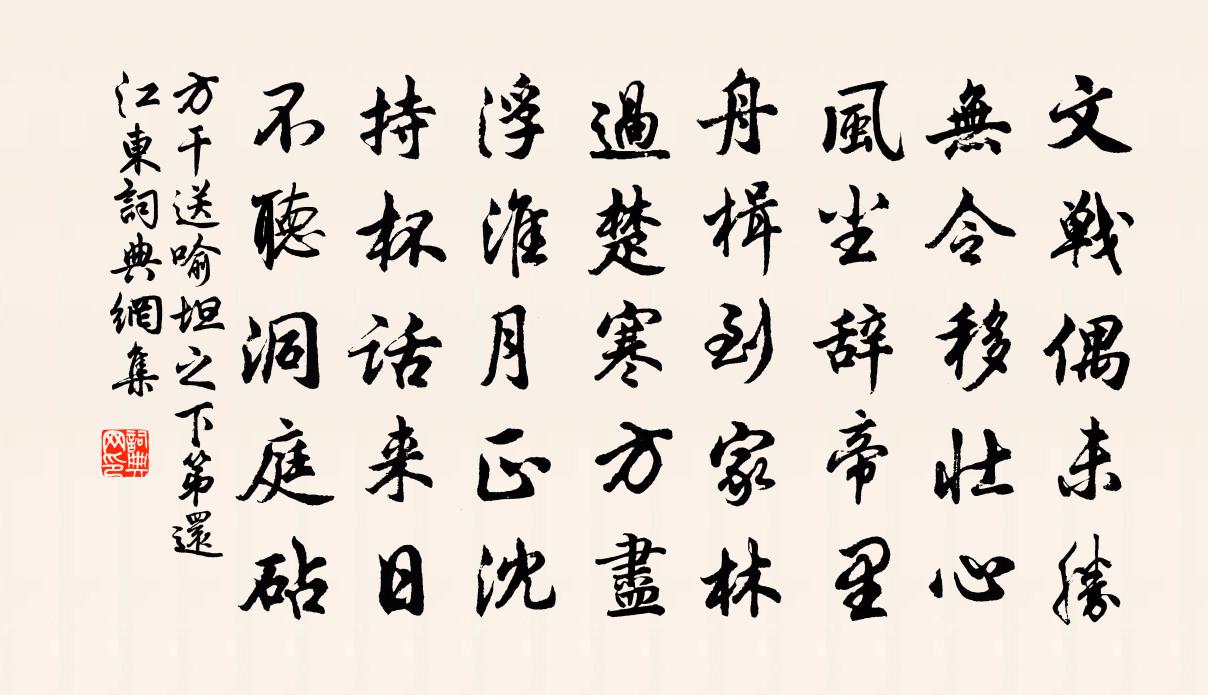 文戰偶未勝
無令移壯心
風尘辞帝里
舟楫到家林
過楚寒方盡
浮淮月正沈
持杯話来日
不聽洞庭砧
方干送喻坦之下第還
江東詞典網集
詞典网印